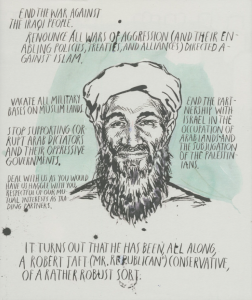 END THE WAR AGAINST
THE IRAQI PEOPLE.
RENOUNCE ALL WARS OF AGGRESSION (AND THEIR EN-
ABLING POLICIES, TREATIES, AND ALLIANCES) DIRECTED A-
GAINST ISLAM.
VACATE ALL MILITARY
BASES ON MUSLIM LANDS.
STOP SUPPORTING COR-
RUPT ARAB DICTATORS
AND THEIR OPPRESSIVE
GOVERNMENTS.
DEAL WITH US AS YOU WOULD
HAVE US
RESPECTFUL OF OUR MU-
TUAL INTERESTS AS TRA-
DING PARTNERS.
END THE PART-
NERSHIP WITH
ISRAEL IN THE
OCCUPATION OF
ARAB LAND AND
THE SUBJUGATION
OF THE PALESTIN-
IANS.
IT TURNS OUT THAT HE HAS BEEN, ALL ALONG,
A ROBERT TAFT ("MR. REPUBLICAN") CONSERVATIVE,
OF A RATHER ROBUST SORT.